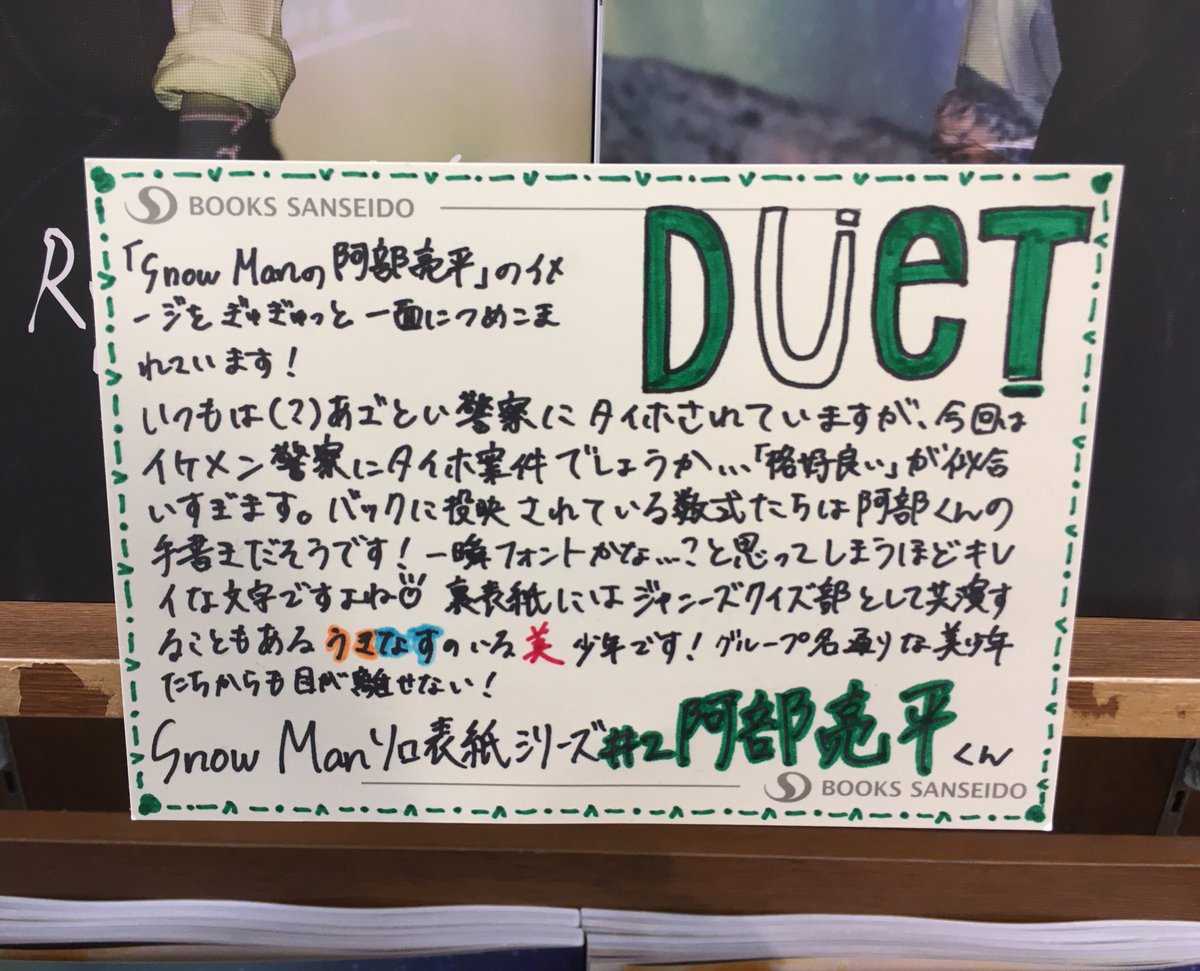 BOOKS SANSEIDO
DUeT
「Snow Manの阿部亮平」のイメ
ージをぎゅぎゅっと一面につめこま
れています！
いつもは(?)あざとい警察にタイホされていますが、今回は
イケメン警察にタイホ案件でしょうか…「格好良い」が似合
いすぎます。バックに投映されている数式たちは阿部くんの
手書きだそうです！一瞬フォントかな…？と思ってしまうほどキレ
イな文字ですよね 裏表紙にはジャニーズクイズ部として共演す
ることもあるうきなすのいる美 少年です！グループ名通りな美少年
たちからも目が離せない！
Snow Manソロ表紙シリーズ#2阿部亮平くん
BOOKS SANSEIDO
R